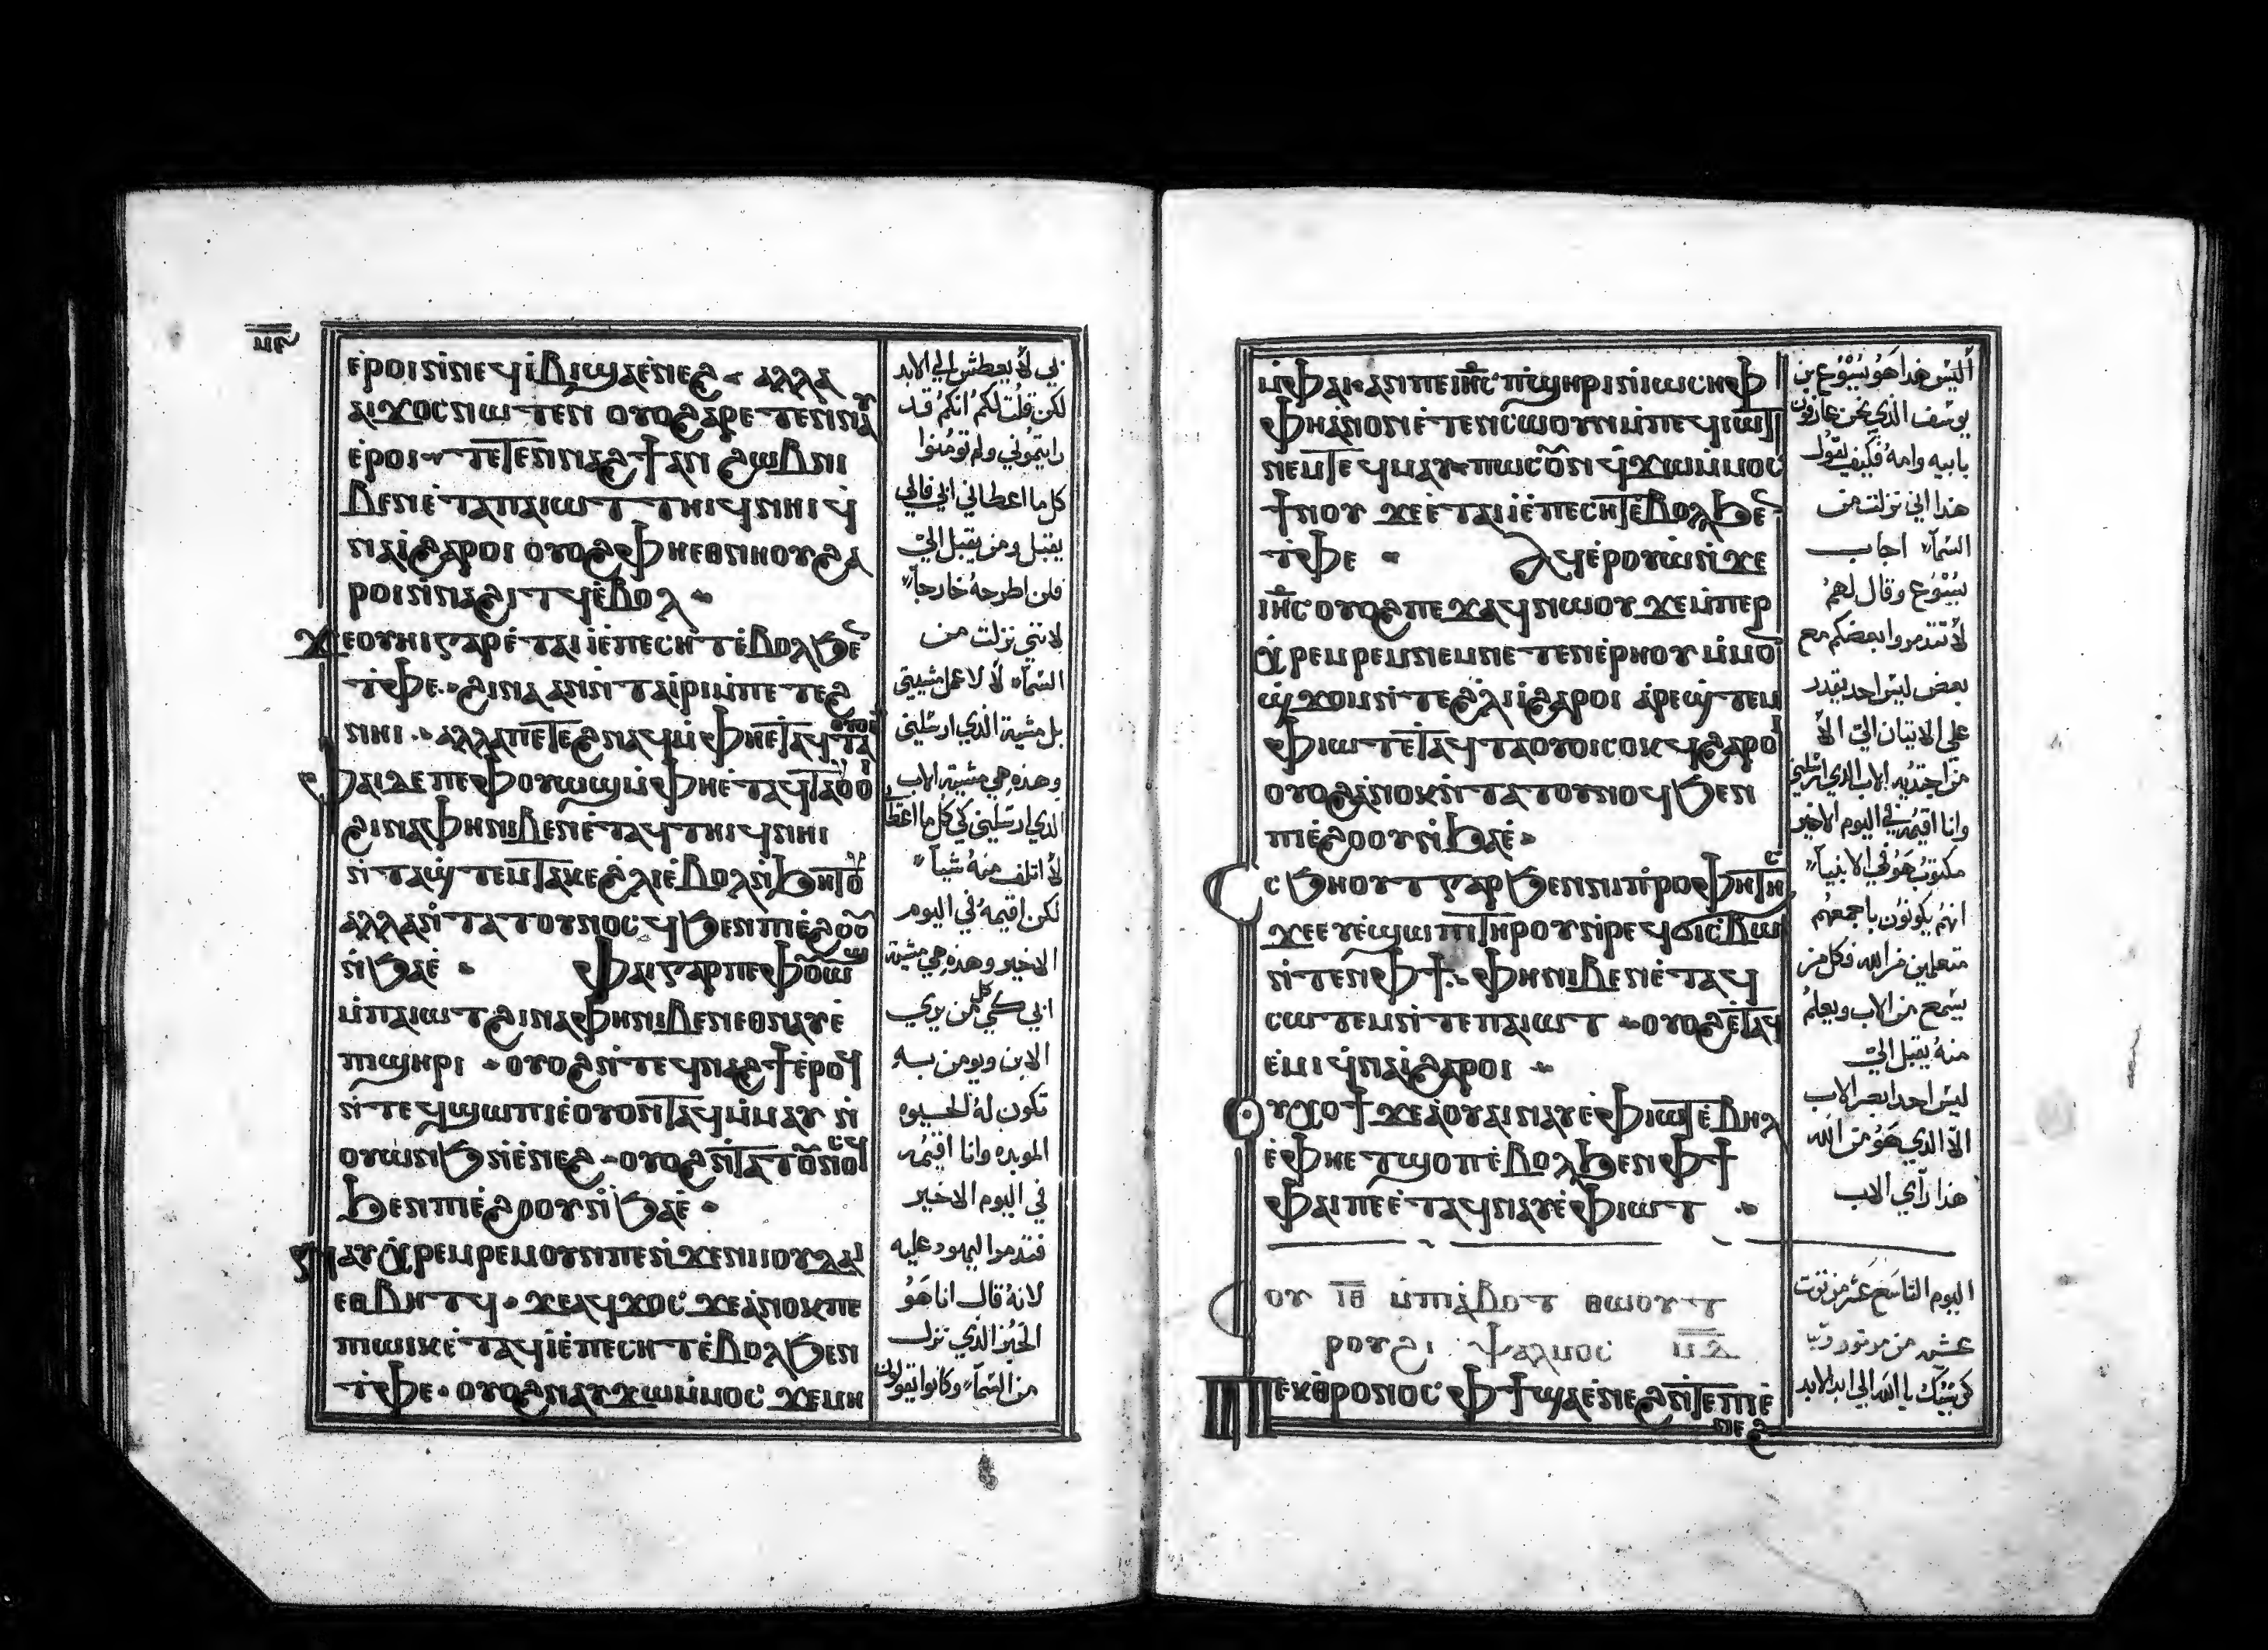 ⲙ̅ⲋ̅
ⲉⲣⲟⲓ ⲛ̀ⲛⲉϥⲓ̀ⲃⲓ ϣⲁ ⲉ̀ⲛⲉϩ ⲁⲗⲗⲁ
ⲁⲓϫⲟⲥ ⲛⲱⲧⲉⲛ ⲟⲩⲟϩ ⲁⲣⲉⲧⲉⲛⲛⲁⲩ
ⲉ̀ⲣⲟⲓ ⲧⲉⲧⲉⲛⲛⲁϩϯ ⲁⲛ ϩⲱⲃ ⲛⲓ
ⲃⲉⲛ ⲉ̀ⲧⲁ ⲡⲁⲓⲱⲧ ⲧⲏⲓϥ ⲛⲏⲓ ϥ̀
ⲛⲁⲓ̀ ϩⲁⲣⲟⲓ ⲟⲩⲟϩ ⲫⲏ ⲉⲑⲛⲏⲟⲩ ϩⲁ
ⲣⲟⲓ ⲛ̀ⲛⲁϩⲓⲧϥ ⲉ̀ⲃⲟⲗ
ϫⲉ ⲟⲩⲏⲓ ⲅⲁⲣ ⲉ̀ⲧⲁⲓⲓ̀ ⲉ̀ⲡⲉⲥⲏⲧ ⲉ̀ⲃⲟⲗ ϧⲉⲛ
ⲧ̀ⲫⲉ ϩⲓⲛⲁ ⲁⲛ ⲛ̀ⲧⲁⲓ̀ⲣⲓ ⲙ̀ⲡⲉⲧⲉϩ
ⲛⲏⲓ ⲁⲗⲗⲁ ⲡⲉⲧⲉϩⲛⲁϥ ⲙ̀ⲫⲏ ⲉ̀ⲧⲁϥⲧⲁⲟⲩⲟⲓ
ⲫⲁⲓ ⲇⲉ ⲡⲉ ⲫⲟⲩⲱϣ ⲙ̀ⲫⲏ ⲉ̀ⲧⲁϥⲧⲁⲟⲩⲟⲓ
ϩⲓⲛⲁ ⲫⲏ ⲛⲓⲃⲉⲛ ⲉ̀ⲧⲁϥⲧⲏⲓϥ ⲛⲏⲓ
ⲛ̀ⲧⲁϣ̀ⲧⲉⲙⲧⲁⲕⲉ ϩ̀ⲗⲓ ⲉ̀ⲃⲟⲗ ⲛ̀ϧⲏⲧⲟⲩ
ⲁⲗⲗⲁ ⲛ̀ⲧⲁⲧⲟⲩⲛⲟⲥϥ ϧⲉⲛ ⲡⲓⲉ̀ϩⲟⲟⲩ
ⲛ̀ϧⲁⲉ̀ ⲫⲁⲓ ⲅⲁⲣ ⲡⲉ ⲫⲟⲩⲱϣ
ⲙ̀ⲡⲁⲓⲱⲧ ϩⲓⲛⲁ ⲫⲏ ⲛⲓⲃⲉⲛ ⲉⲑⲛⲁⲩ ⲉ̀
ⲡⲓϣⲏⲣⲓ ⲟⲩⲟϩ ⲛ̀ⲧⲉϥⲛⲁϩϯ ⲉ̀ⲣⲟϥ
ⲛ̀ⲧⲉϥϣⲱⲡⲓ ⲉ̀ⲟⲩⲟⲛⲧⲁϥ ⲙ̀ⲙⲁⲩ ⲛ̀
ⲟⲩⲱⲛϧ ⲛ̀ⲉ̀ⲛⲉϩ ⲟⲩⲟϩ ⲛ̀ⲧⲁⲧⲟⲩⲛⲟⲥϥ
ϧⲉⲛ ⲡⲓⲉ̀ϩⲟⲟⲩ ⲛ̀ϧⲁⲉ̀
ⲛⲁⲩⲭ̀ⲣⲉⲙⲣⲉⲙ ⲟⲩⲛ ⲡⲉ ⲛ̀ϫⲉ ⲛⲓⲓⲟⲩⲇⲁⲓ
ⲉⲑⲃⲏⲧϥ ϫⲉ ⲁϥϫⲟⲥ ϫⲉ ⲁ̀ⲛⲟⲕ ⲡⲉ
ⲡⲓⲱⲓⲕ ⲉ̀ⲧⲁϥⲓ̀ ⲉ̀ⲡⲉⲥⲏⲧ ⲉ̀ⲃⲟⲗ ϧⲉⲛ
ⲧ̀ⲫⲉ ⲟⲩⲟϩ ⲛⲁⲩϫⲱ ⲙ̀ⲙⲟⲥ ϫⲉ ⲙⲏ
بي لا يعطش الي الابد
لكن قلت لكم انكم قد
رايتموني ولم تومنوا
كل ما اعطاني ابي فالي
يقبل ومن يقبل اليّ
فلن اطرحه خارجاً
لانني نزلت من
السماء لا لاعمل مشيتي
بل مشية الذي ارسلني
وهذه هي مشية الاب
الذي ارسلني كي كل ما اعطاني
لا اتلف منه شياً
لكن اقيمه في اليوم
الاخير وهذه هي مشية
ابي كي كل من يري
الابن ويومن به
تكون له الحيوه
الموبده وانا اقيمه
في اليوم الاخير
فتذمروا اليهود عليه
لانه قال انا هو
الخبز الذي نزل
من السماء وكانوا يقولون
ⲙ̀ⲫⲁⲓ ⲁⲛ ⲡⲉ ⲓⲏⲥ ⲡ̀ϣⲏⲣⲓ ⲛ̀ⲓⲱⲥⲏⲫ
ⲫⲏ ⲁ̀ⲛⲟⲛ ⲉ̀ⲧⲉⲛⲥⲱⲟⲩⲛ ⲙ̀ⲡⲉϥⲓⲱⲧ
ⲛⲉⲙ ⲧⲉϥⲙⲁⲩ ⲡⲱⲥ ⲟⲩⲛ ϥ̀ϫⲱ ⲙ̀ⲙⲟⲥ
ϯⲛⲟⲩ ϫⲉ ⲉ̀ⲧⲁⲓⲓ̀ ⲉ̀ⲡⲉⲥⲏⲧ ⲉ̀ⲃⲟⲗ ϧⲉⲛ
ⲧ̀ⲫⲉ ⲁϥⲉ̀ⲣⲟⲩⲱ̀ ⲛ̀ϫⲉ
ⲓⲏⲥ ⲟⲩⲟϩ ⲡⲉϫⲁϥ ⲛⲱⲟⲩ ϫⲉ ⲙ̀ⲡⲉⲣ
ⲭ̀ⲣⲉⲙⲣⲉⲙ ⲛⲉⲙ ⲛⲉⲧⲉⲛⲉ̀ⲣⲏⲟⲩ ⲙ̀ⲙⲟⲛ
ϣ̀ϫⲟⲙ ⲛ̀ⲧⲉ ϩ̀ⲗⲓ ⲓ̀ ϩⲁⲣⲟⲓ ⲁ̀ⲣⲉϣ̀ⲧⲉⲙ
ⲫⲓⲱⲧ ⲉ̀ⲧⲁϥⲧⲁⲟⲩⲟⲓ ⲥⲟⲕϥ ϩⲁⲣⲟⲓ
ⲟⲩⲟϩ ⲁ̀ⲛⲟⲕ ⲛ̀ⲧⲁⲧⲟⲩⲛⲟⲥϥ ϧⲉⲛ
ⲡⲓⲉ̀ϩⲟⲟⲩ ⲛ̀ϧⲁⲉ̀
ⲥⲥϧⲏⲟⲩⲧ ⲅⲁⲣ ϧⲉⲛ ⲛⲓⲡ̀ⲣⲟⲫⲏⲧⲏⲥ
ϫⲉ ⲉⲩⲉ̀ϣⲱⲡⲓ ⲧⲏⲣⲟⲩ ⲛ̀ⲣⲉϥϭⲓⲥⲃⲱ
ⲛ̀ⲧⲉⲛ ⲫϯ ⲫⲏ ⲛⲓⲃⲉⲛ ⲉ̀ⲧⲁϥ
ⲥⲱⲧⲉⲙ ⲛ̀ⲧⲉ ⲡⲁⲓⲱⲧ ⲟⲩⲟϩ ⲉ̀ⲧⲁϥ
ⲉⲙⲓ ϥ̀ⲛⲁⲓ̀ ϩⲁⲣⲟⲓ
ⲟⲩⲭ ⲟϯ ϫⲉ ⲁ̀ⲟⲩⲁⲓ ⲛⲁⲩ ⲉ̀ⲫⲓⲱⲧ ⲉ̀ⲃⲏⲗ
ⲉ̀ⲫⲏ ⲉⲧϣⲟⲡ ⲉ̀ⲃⲟⲗ ϧⲉⲛ ⲫϯ
ⲫⲁⲓ ⲡⲉ ⲉ̀ⲧⲁϥⲛⲁⲩ ⲉ̀ⲫⲓⲱⲧ
ⲥⲟⲩ ⲓ̅ⲑ̅ ⲙ̀ⲡⲓⲁ̀ⲃⲟⲧ ⲑⲱⲟⲩⲧ
ⲣⲟⲩϩⲓ ⲯⲁⲗⲙⲟⲥ ⲙ̅ⲇ̅
ⲡⲉⲕⲑ̀ⲣⲟⲛⲟⲥ ⲫϯ ϣⲁ ⲉ̀ⲛⲉϩ ⲛ̀ⲧⲉ ⲡⲓⲉ̀
ⲛⲉϩ
أليس هذا هو يسوع بن
يوسف الذي نحن عارفون
بابيه وامه فكيف يقول
هذا اني نزلت من
السماء اجاب
يسوع وقال لهم
لا تتذمروا بعضكم مع
بعض ليس احد يقدر
علي الاتيان اليّ الا
من اجتذبه الاب الذي ارسلني
وانا اقيمه في اليوم الاخير
مكتوب هو في الانبياء
انهم يكونون باجمعهم
متعلمين من الله فكل من
يسمع من الاب ويعلم
منه يقبل اليّ
ليس احد ابصر الاب
الا الذي هو من الله
هذا رأي الاب
اليوم التاسع عشر من توت
عشية من مزمور
كرسيك يا الله الي ابد الابد